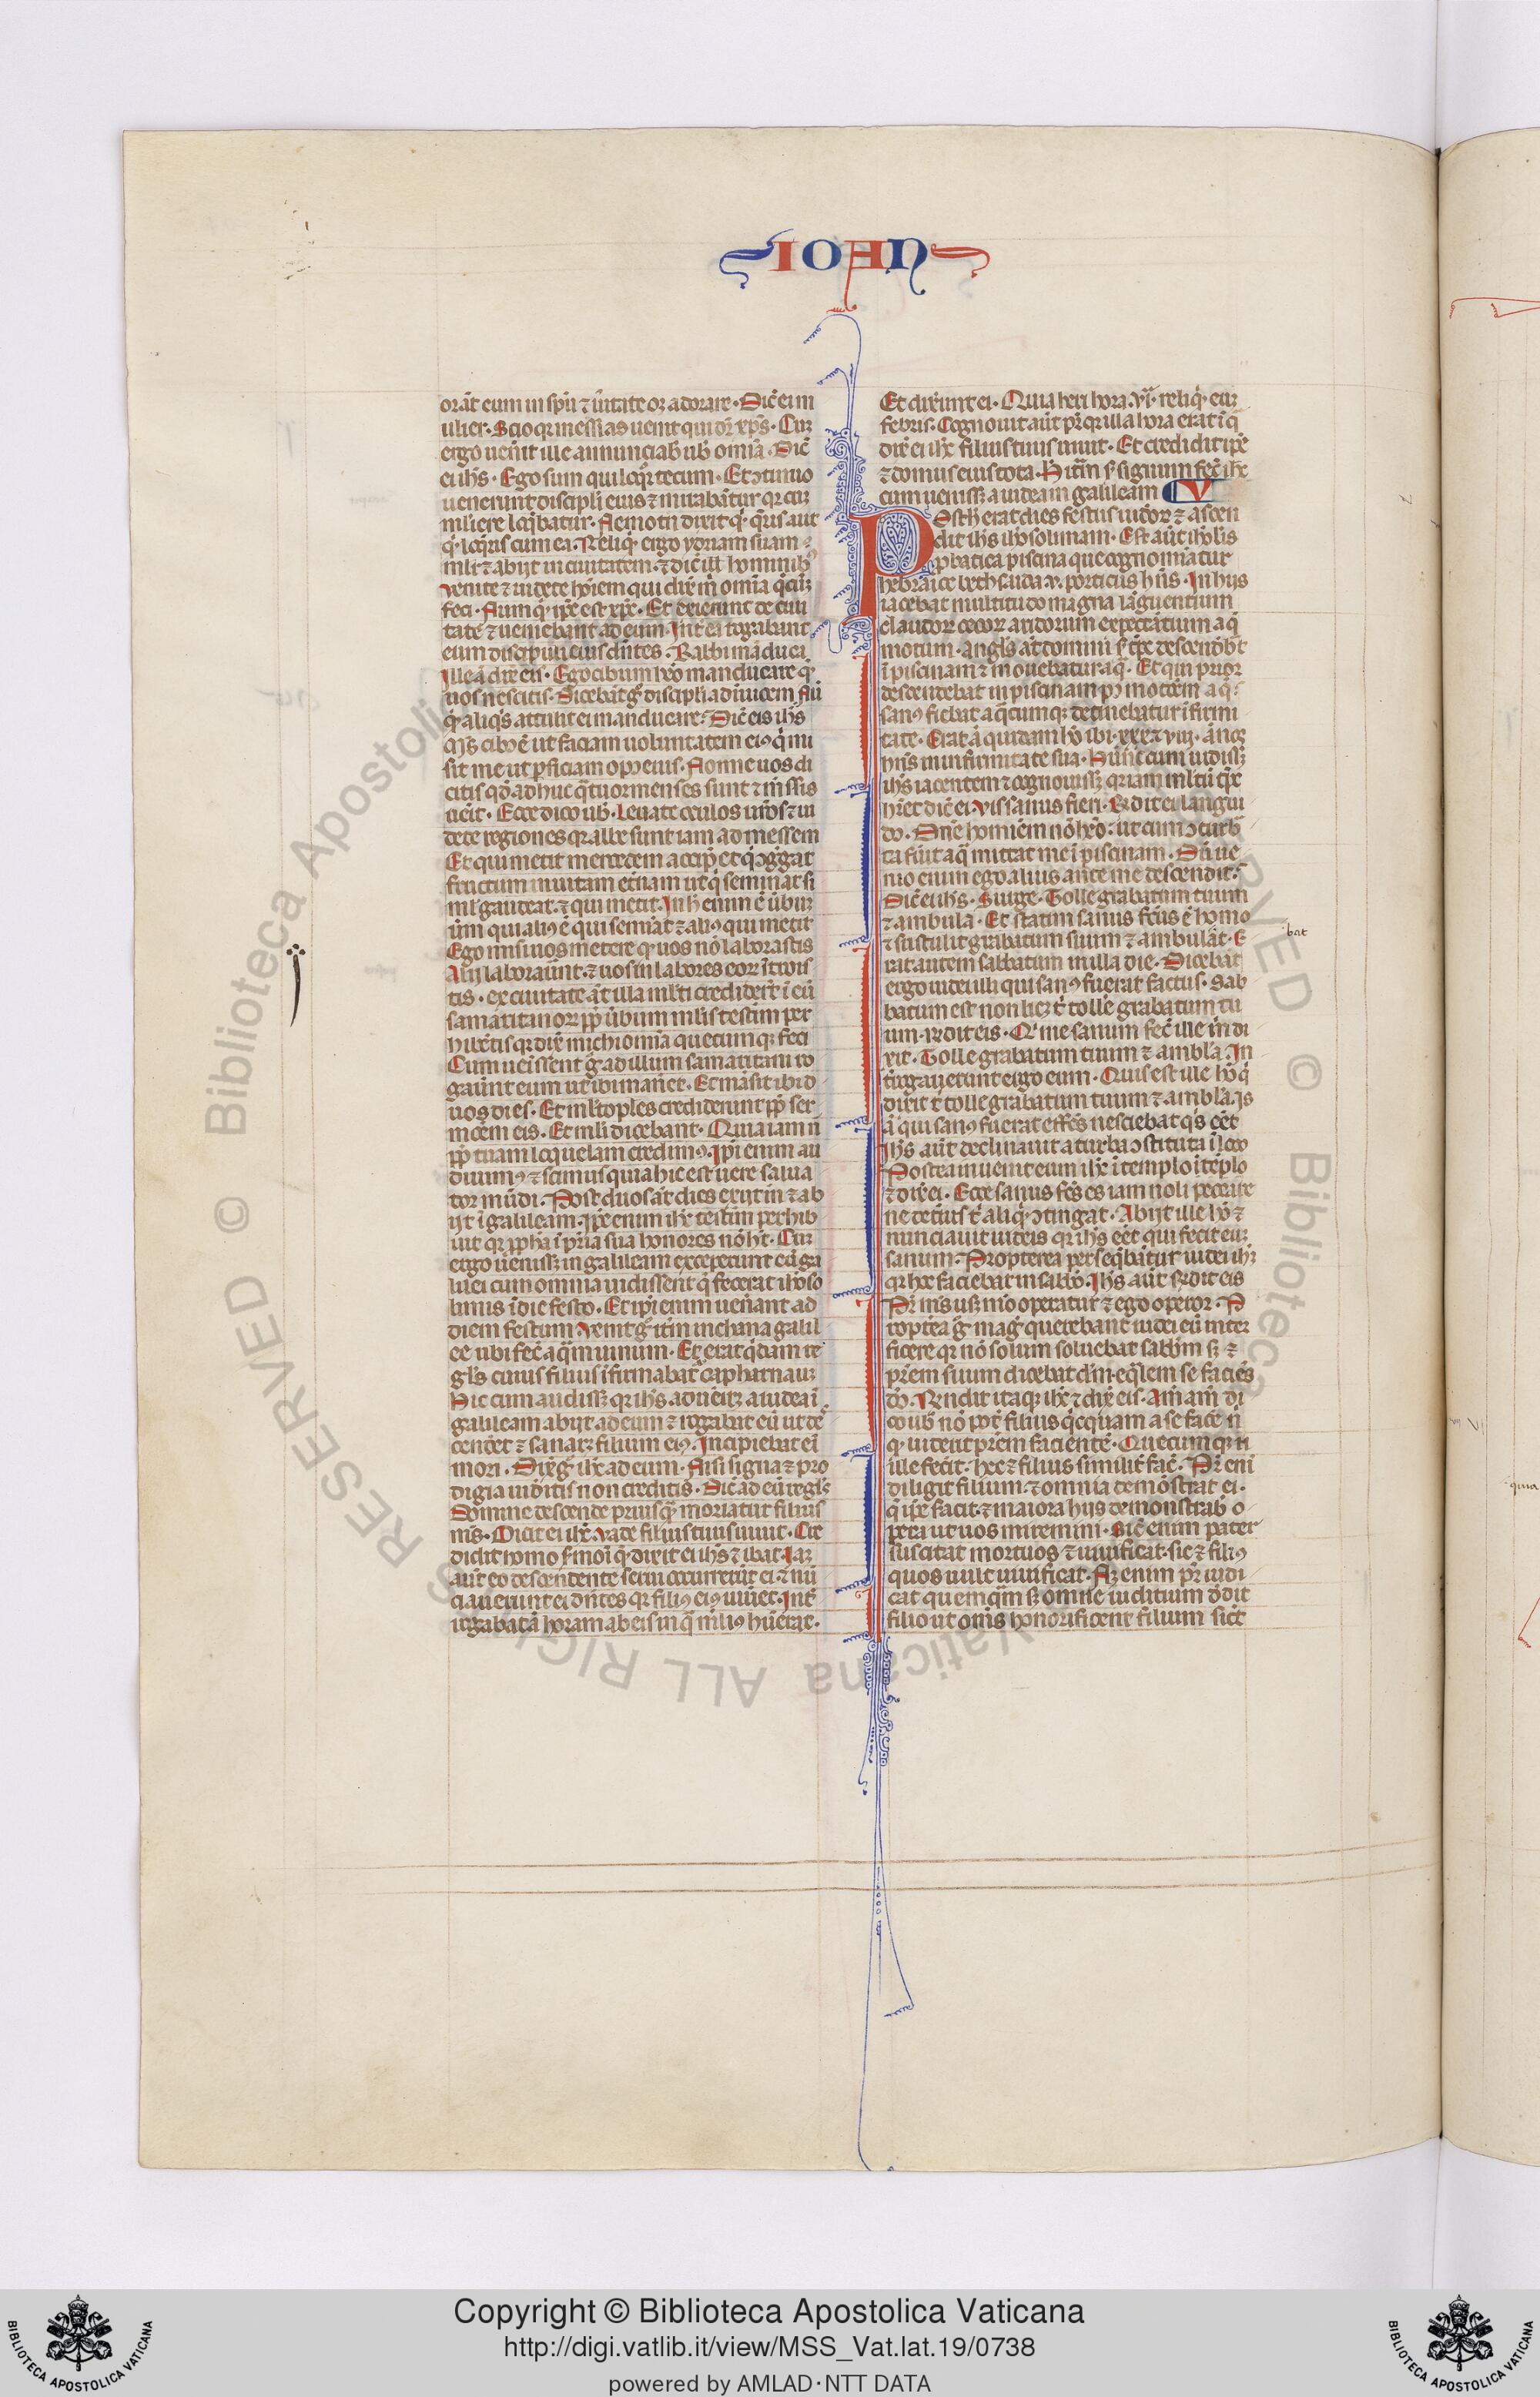 IOAN
orāt eum in spū ⁊ ūitate oꝫ adorare. Dič ei m
ulier. Scio qꝛ messias uenit qui dr̄ xp̄s. Cuꝫ
ergo uen̄it ille annunciab̄ uob̄ omīa. Dič
ei ih̄s. Ego sum qui lcqr̄ tecum. Et ↄtinuo
uenerunt discipli eius ⁊ mirabātur qꝛ cuꝫ
muliere lcq̄batur. Nemo tn̄ dixit q̇. q̄ris aut
q̇. lcq̄ris cum ea. Reliq̇ ergo ydriam suam
mlr̄ ⁊ abijt in ciuitatem. ⁊ dič ill̄ hominib⁹
Venite ⁊ uidete hoīem qui dix̄ m̄ omīa q̄cūqꝫ
feci. Nūmq̇ ip̄e est xp̄c. Et exierunt de ciui
tate ⁊ ueniebant ad eum. Int̄ ea rogabant
eum discipuli eius dn̄tes. Rabbi māduca
Ille ā dix̄ eis. Ego cibum hēo manducare q̇
uos nescitis. Dicebāt ḡ discipli ad inuicem Nū
q̇ aliq̇s attulit ei manducare. Dič eis ih̄s
Ms̄ cib⁹ ē ut faciam uoluntatem ei⁹ q̇ mi
sit me ut ꝑficiam op⁹ eius. Nonne uos di
citis qd̄ adhuc q̄tuor menses sunt ⁊ m̄ssis
uēit. Ecce dico uob̄. Leuate oculos ur̄os ⁊ ui
dete regiones qꝛ albe sunt iam ad messem
Et qui metit mercedem accip̄ et ↄg̃gat
fructum in uitam et̄nam ut q̇ seminat si
ml̄ gaudeat. ⁊ qui metit. In h̄ enim ē ūbuꝫ
ūm qui ali⁹ ē qui semīat ⁊ ali⁹ qui metit
Ego misi uos metere q̇ uos nō laborastis
Alij laborauūnt. ⁊ uos in labores eoꝝ ītrois
tis. ex ciuitate aūt illa ml̄ti crediderūt ī eū
samaritanoꝝ ꝓp̄ ūbum mulr̄is testīm per
hibētis qꝛ dix̄ michi omīa quecumqꝫ feci
Cum uēissent ḡ ad illum samaritani ro
gauūnt eum ut ibi manēt. Et māsit ibi d
uos dies. Et ml̄to ples crediderunt ꝓp̄ ser
mōem eius. Et mlr̄i dicebant. Quia iam nō
ꝓp̄ tuam lcquelam credim⁹. ip̄i enim au
diuim⁹ ⁊ scimus quia hic est uere salua
tor mūdi. Post duos aūt dies exijt in ⁊ ab
ijt ī galileam. Ip̄e enim ih̄c testīm perhib
uit qꝛ ꝓpha ī pr̄ia sua honores nō ht̄. Cuꝫ
ergo uenissꝫ in galileam exceperunt eū ga
lilei cum omnia uidissent q̄ fecerat ih̄oso
limis ī die festo. Et ip̄i enim uen̄ant ad
diem festum Venit ḡ itm̄ in chana galil
ee ubi fec̄ aq̄m uinum. Et erat q̇dam re
gl̄s cuius filius īfirmabat̄ capharnauꝫ
Hic cum audissꝫ qꝛ ih̄s. adueīꝫ a iudea ī
galileam abijt ad eum ⁊ rogabat eū ut de
cendet ⁊ sanaꝫ filium ei⁹. Incipiebat ei
mori. Dix̄ ḡ ih̄c ad eum. Nisi signa ⁊ pro
digia uidītis non creditis. Dič ad eū regl̄s
Domine descende priusq̄ moriatur filius
me⁹. Dicit ei ih̄c. Vade filius tuus uiuit. Cre
didit homo smōi q̇ dixit ei ih̄s ⁊ ibat. Iaꝫ
aūt eo descendente serui occurrerūt ei ⁊ nū
ciauerunt ei dn̄tes qꝛ fili⁹ ei⁹ uiuiet. Int̄
rogabat ā horam ab eis in q̄ mli⁹ huerat.
Et dixerunt ei. Quia heri hora vıı. reliq̇ euꝫ
febris. Cognouit aūt pr̄ qꝛ illa hora erat ī q̄
dix̄ ei ih̄c filius tuus uiuit. Et credidit ip̄e
⁊ domus eius tota. H̄ itm̄ s̄ signum fec̄ ih̄c
cum uenissꝫ a iudeam galileam V
Post h̄ erat dies festus iudeoꝝ ⁊ ascen
dit ih̄s ih̄osolimam. Est aūt ih̄olis
ꝓbatica piscina que cognominatur
hebraice bethsaida. v. porticus hn̄s. In hijs
iacebat multitudo magna languentium
claudoꝝ cecoꝝ aridorum expectantium aq̄
motum. angl̄s āt domini s̄ tp̄e descendebt
ī piscinam ⁊ mouebatur aq̄. Et qui prior
descendebat in piscinam p⁹ motōem aq̄
san⁹ fiebat a q̄cumqꝫ detinebatur īfirmi
tate. Erat ā quidam hō ibi. xxx. ⁊ viij. ānos
hn̄s in infirmitate sua. Hūc cum uidissꝫ
ih̄s iacentem ⁊ cognouissꝫ qꝛ iam ml̄tū tp̄c
hr̄et dič ei. Vis sanus fieri. Rn̄dit ei langui
do. Dn̄e hominem nō hēo: ut cum ↄturb
ta fūit aq̄ mittat me ī piscinam. Dū ue
nio enim ego alius ante me descendit.
Dič ei ih̄s. Surge. Tolle grabatum tuum
⁊ ambula. Et statim sanus fcūs ē homo
⁊ sustulit grabatum suum ⁊ ambulāt. E
bat
rat autem sabbatum in illa die. Dicebāt
ergo iudei illi qui san⁹ fuerat factus. Sab
batum est non licꝫ t̄ tolle grabatum tu
um. Rn̄dit eis. Q̇ me sanum fec̄ ille m̄ di
xit. Tolle grabatum tuum ⁊ ambl̄a. In
tr̄rogauerunt ergo eum. Quis est ille hō q̇
dixit t̄ tolle grabatum tuum ⁊ ambl̄a. Is
ā qui san⁹ fuerat effēs nesciebat q̇s eēt
Ih̄s aūt declinauit a turba ↄstituta ī loco
Postea inuenit eum ih̄c ī templo ītēplo
⁊ dix̄ ei. Ecce sanus fēs es iam noli peccare
ne deteri⁹ t̄ aliq̇ ↄtingat. Abijt ille hō ⁊
nunciauit iudeis qꝛ ih̄s eēt qui fecit euꝫ
sanum. Propterea perseq̄bātur iudei ih̄ꝫ
qꝛ hec faciebat in sabb̄o. Ih̄s aūt rn̄dit eis
Pr̄ m̄s usqꝫ mō operatur ⁊ ego operor. P
ropterea ḡ mag̃ querebant iudei eū inter
ficere qꝛ nō solum soluebat sabb̄m sꝫ ⁊
pr̄em suum dicebat dm̄. eq̄lem se faciēs
deo. Rn̄dit itaqꝫ ih̄c ⁊ dix̄ eis. Am̄ am̄ di
co uob̄ nō pōt filius q̇cquam a se face n̄
q̇ uiderit pr̄em facientē. Quecumqꝫ n̄
ille fecit. hec ⁊ filius similit̄ fac̄. Pr̄ eni
diligit filium. ⁊ omnia demōstrat ei.
q̄ ip̄e facit. ⁊ maiora hijs demonstrab̄ o
pera ut uos miremini. Sic̄ enim pater
suscitat mortuos ⁊ uiuificat. sic ⁊ fili⁹
quos uult uiuificat. Neqꝫ enim pr̄ iudi
cat quemq̄m sꝫ omne iudicium dedit
filio ut om̄s honorificent filium sic̄t
Biblioteca Apostolica Vaticana ALL RIGHTS RESERVED ©
Copyright © Biblioteca Apostolica Vaticana
http://digi.vatlib.it/view/MSS_Vat.lat.19/0738
powered by AMLAD·NTT DATA
BIBLIOTECA APOSTOLICA VATICANA
BIBLIOTECA APOSTOLICA VATICANA